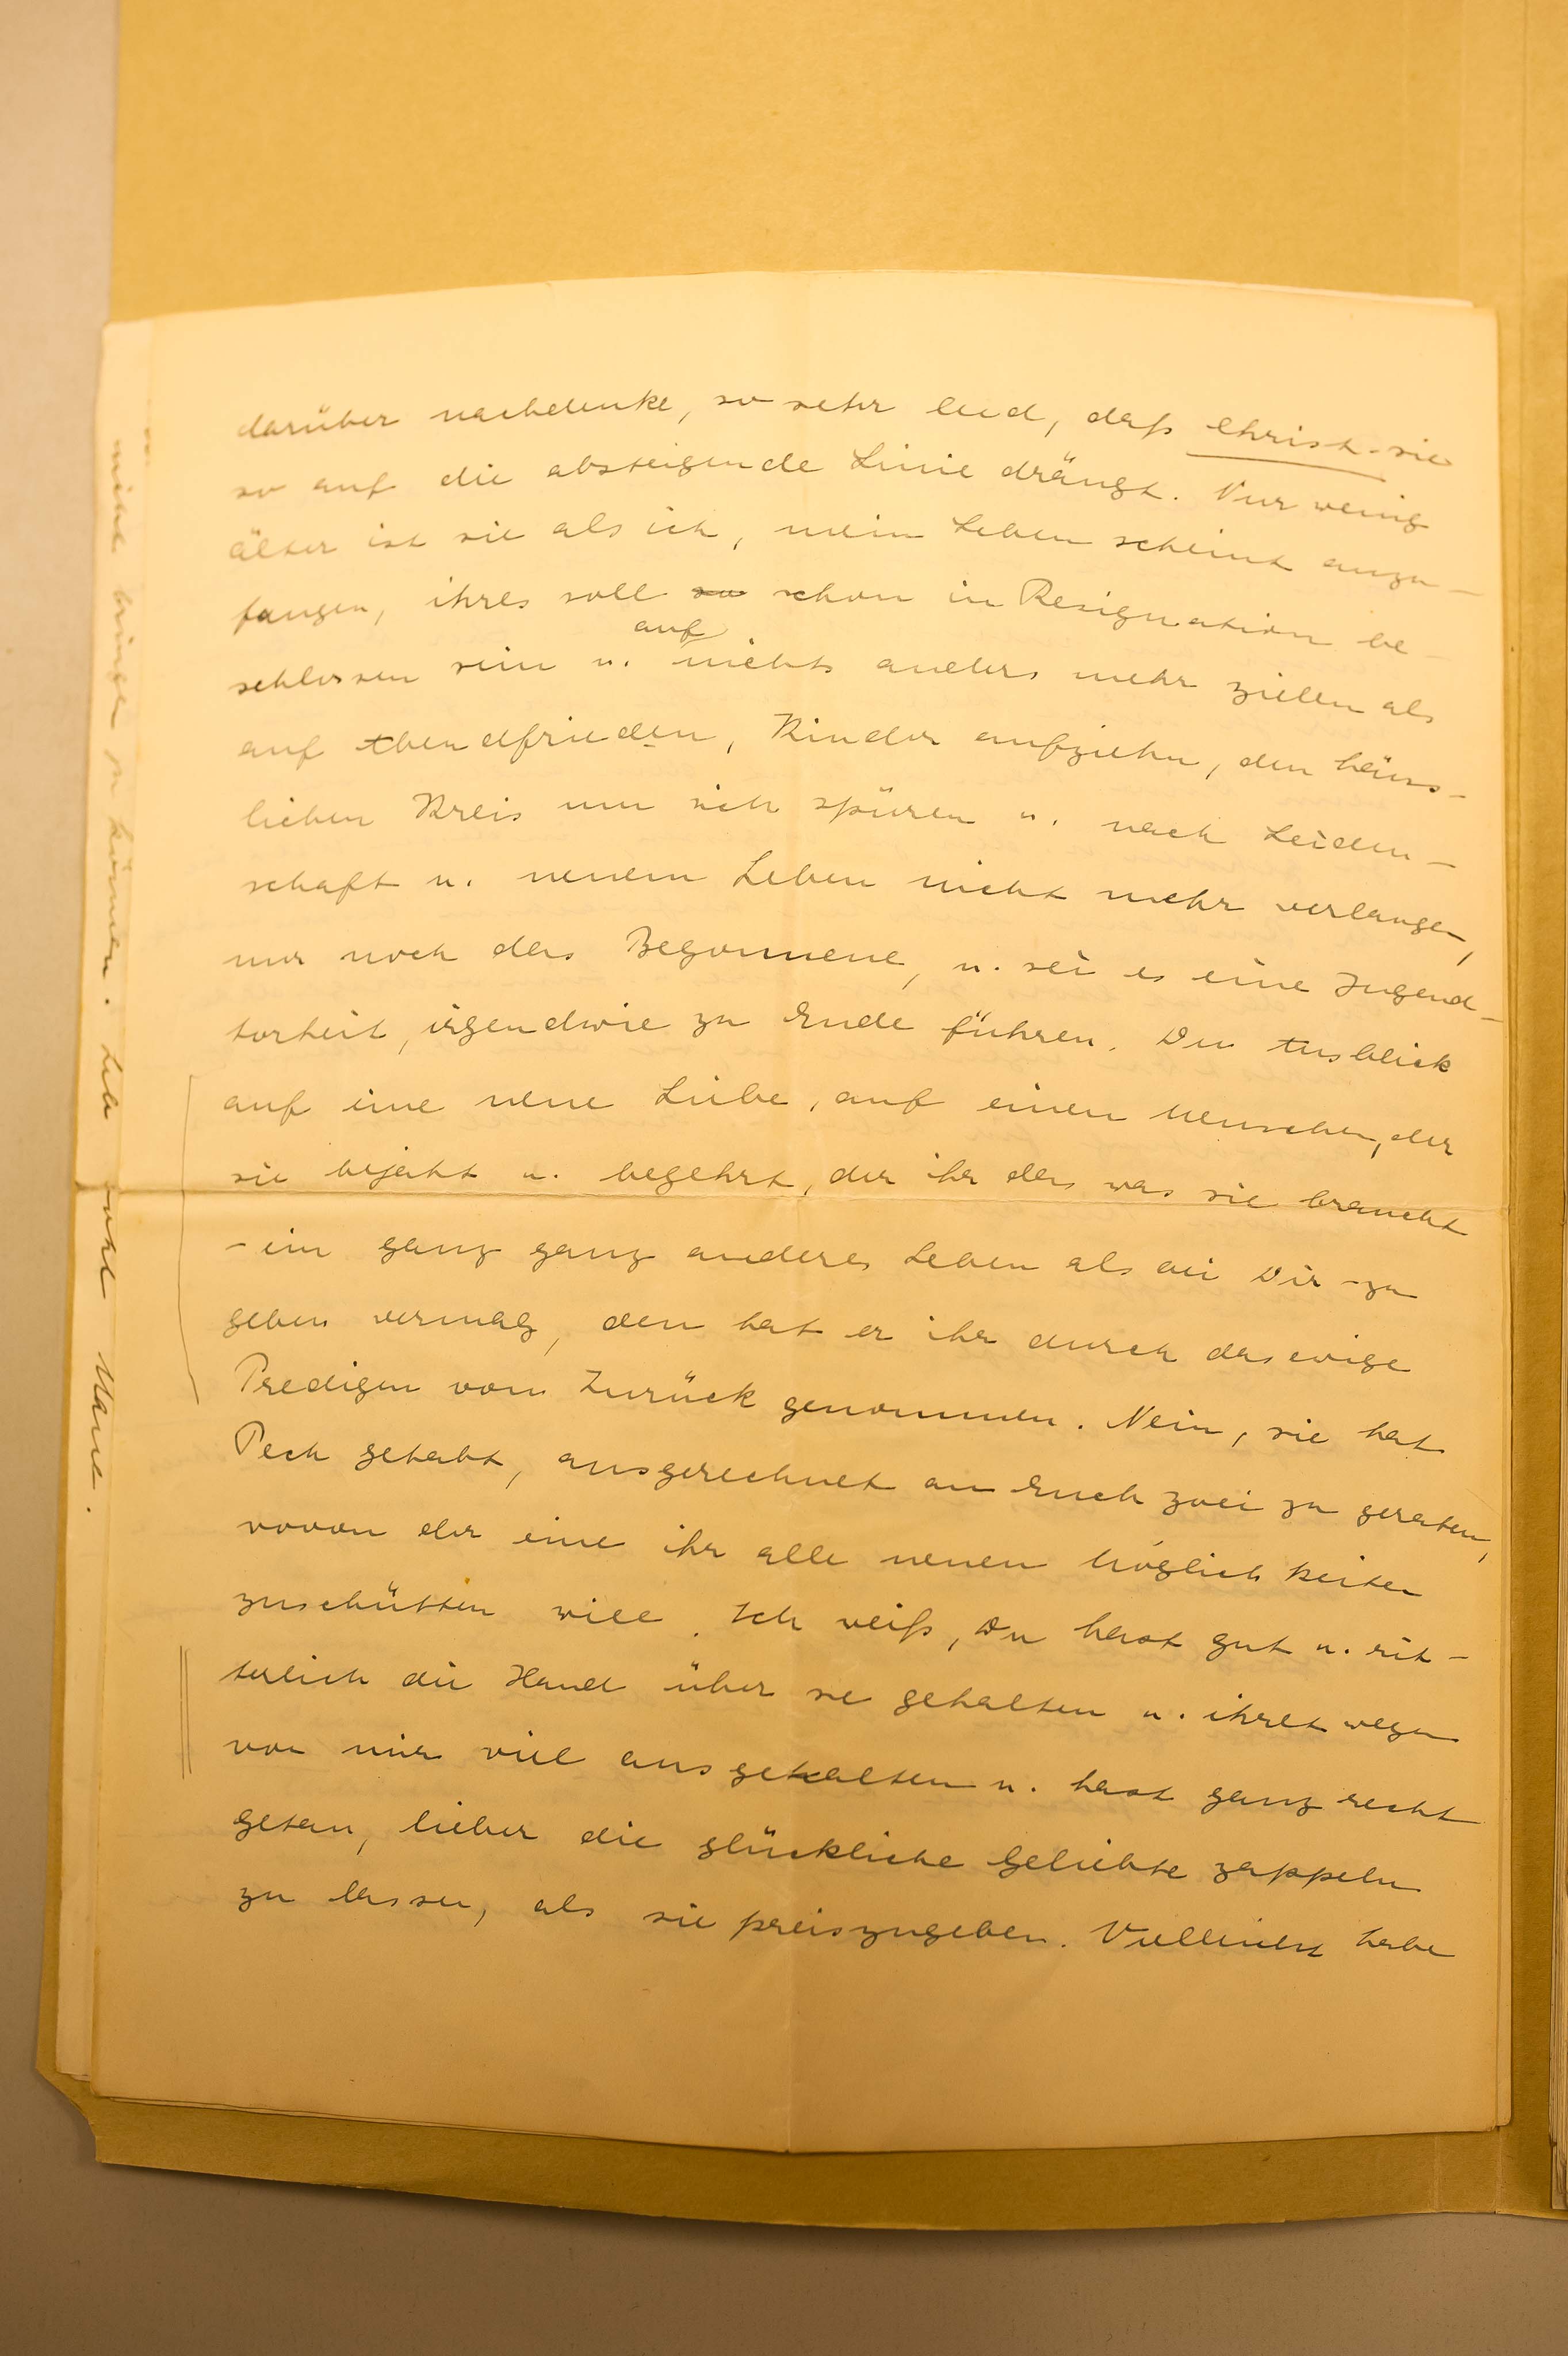 darüber nachdenke, so sehr leid, daß Christ. sie
so auf die absteigende Linie drängt. Nur wenig
älter ist sie als ich, mein Leben scheint anzu-
fangen, ihres soll so schon in Resignation be-
schlossen sein u. auf nichts anders mehr zielen als
auf Abendfrieden, Kinder aufziehn, den häus-
lichen Kreis um sich spüren u. nach Leiden-
schaft u. neuem Leben nicht mehr verlangen,
nur noch das Begonnene, u. sei es eine Jugend-
torheit, irgendwie zu Ende führen. Den Ausblick
auf eine neue Liebe, auf einen Menschen, der
sie bejaht u. begehrt, der ihr das was sie braucht
- ein ganz ganz anderes Leben als bei Dir - zu
geben vermag, den hat er ihr durch das ewige
Predigen vom Zurück genommen. Nein, sie hat
Pech gehabt, ausgerechnet an Euch zwei zu geraten,
wovon der eine ihr alle neuen Möglichkeiten
zuschütten will. Ich weiß, Du hast gut u. rit-
terlich die Hand über sie gehalten u. ihretwegen
von mir viel ausgehalten u. hast ganz recht
getan, lieber die glückliche Geliebte zappeln
zu lassen, als sie preiszugeben. Vielleicht habe
nicht bringen zu können. Leb wohl